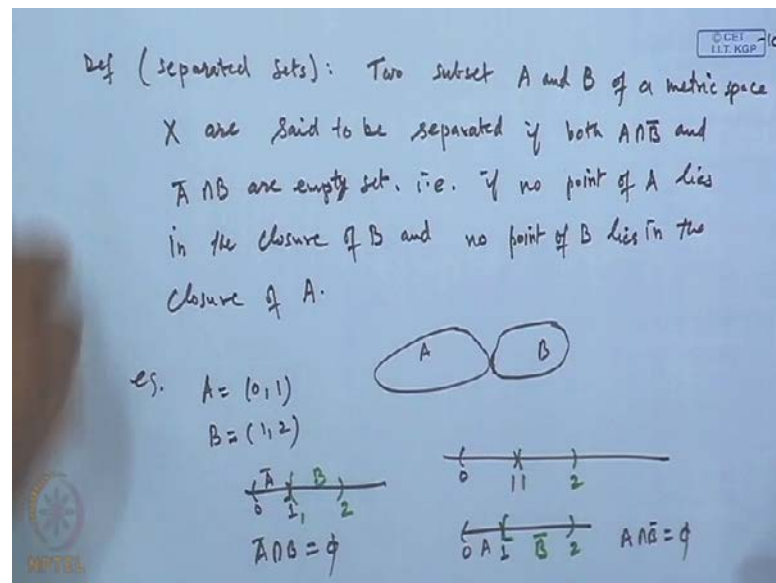 © CET
I.I.T. KGP
Def (separated sets): Two subset A and B of a metric space
X are said to be separated if both A∩B̅ and
A̅ ∩B are empty set. i.e. if no point of A lies
in the closure of B and no point of B lies in the
closure of A.
A B
eg. A = (0,1)
B = (1,2)
0 1 2
A̅ B
0 1 2
A̅∩B = ϕ
0 A 1 B̅ 2 A∩B̅ = ϕ
NPTEL